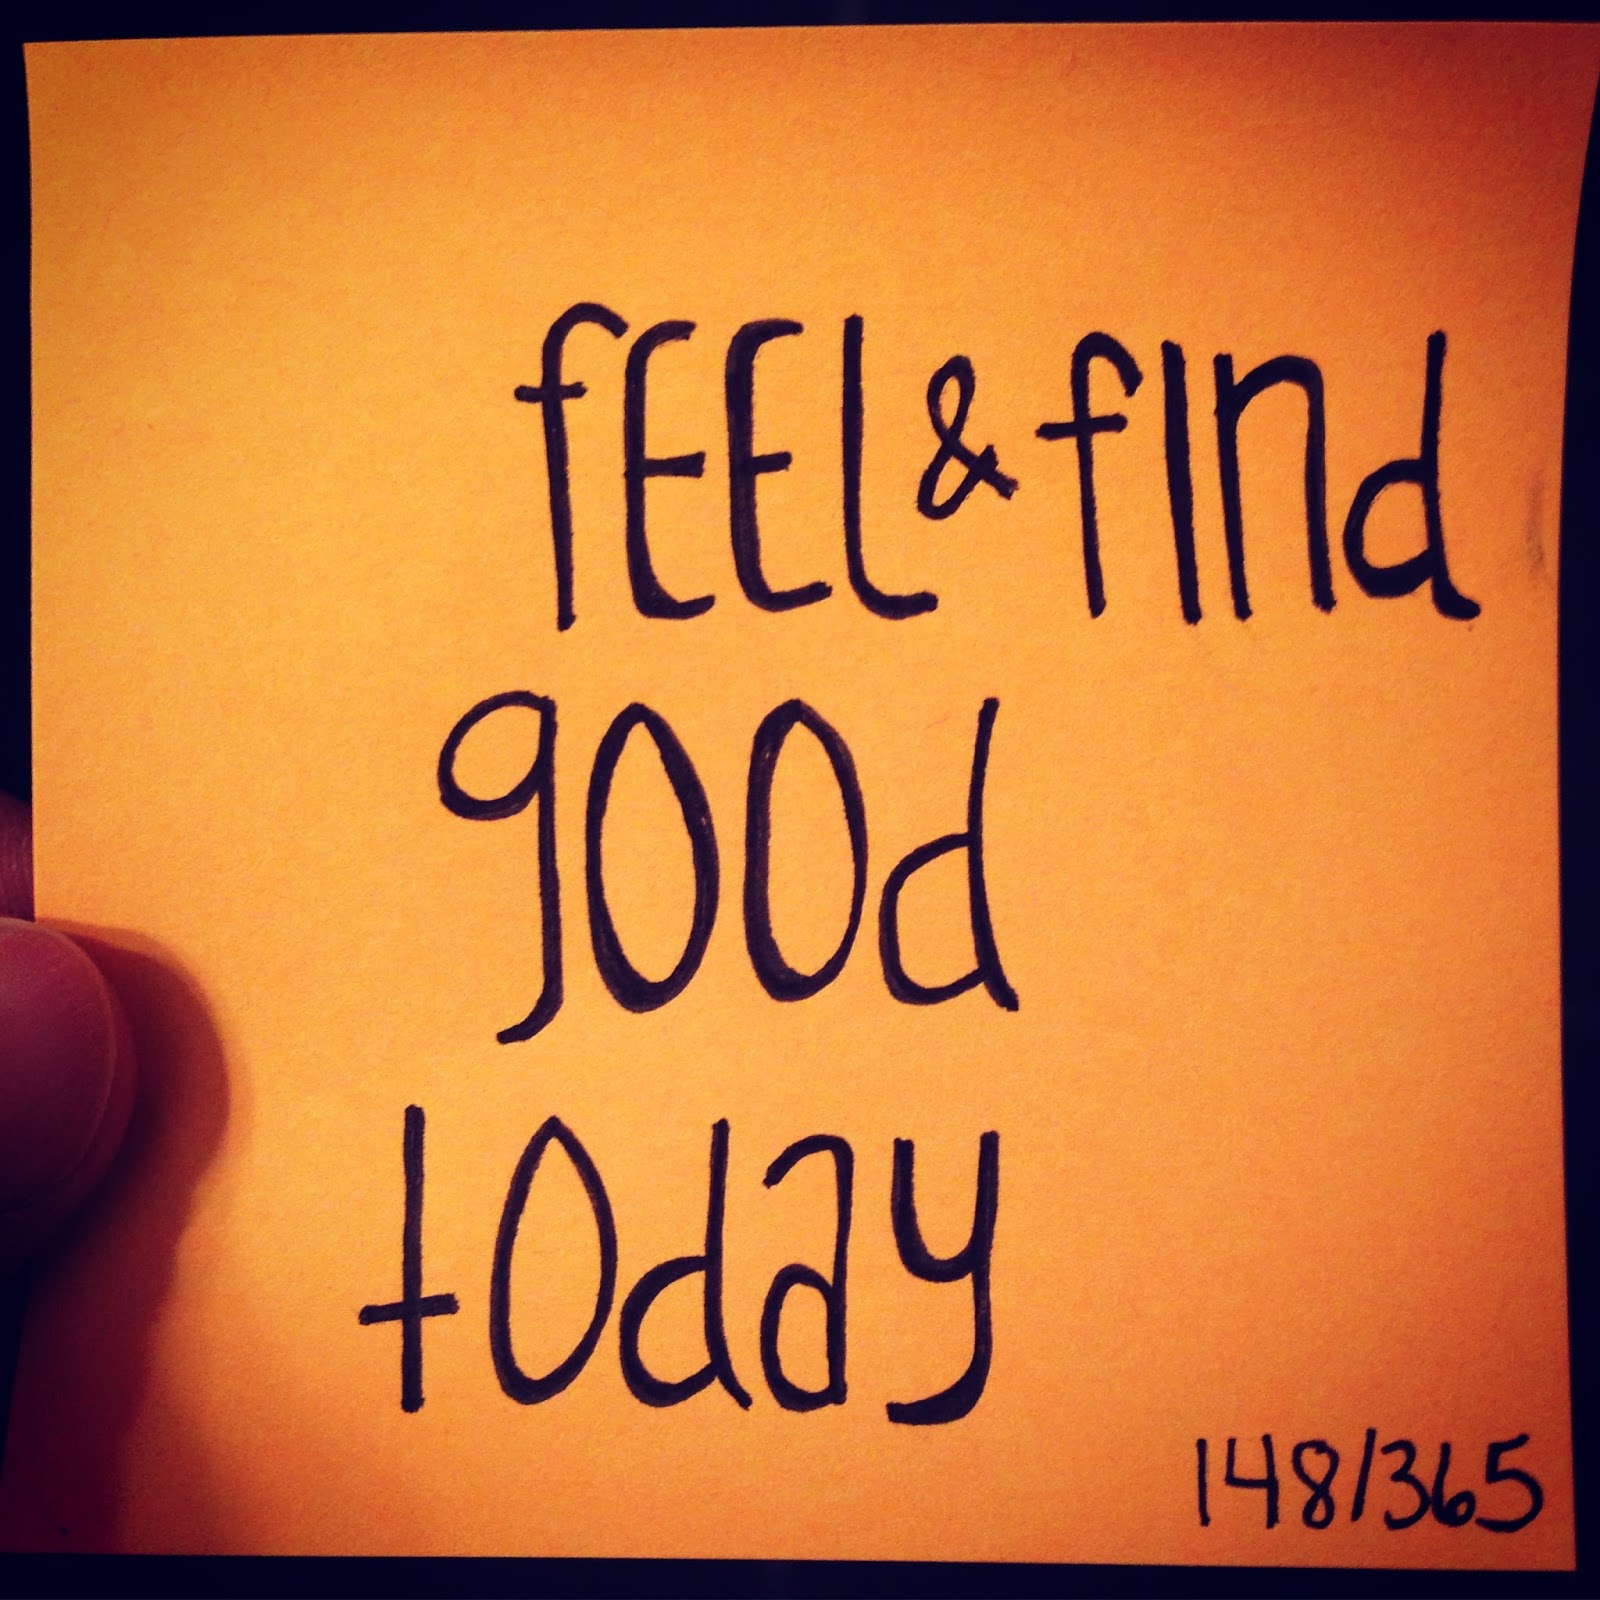 fEEl & fInd
good
today
148/365